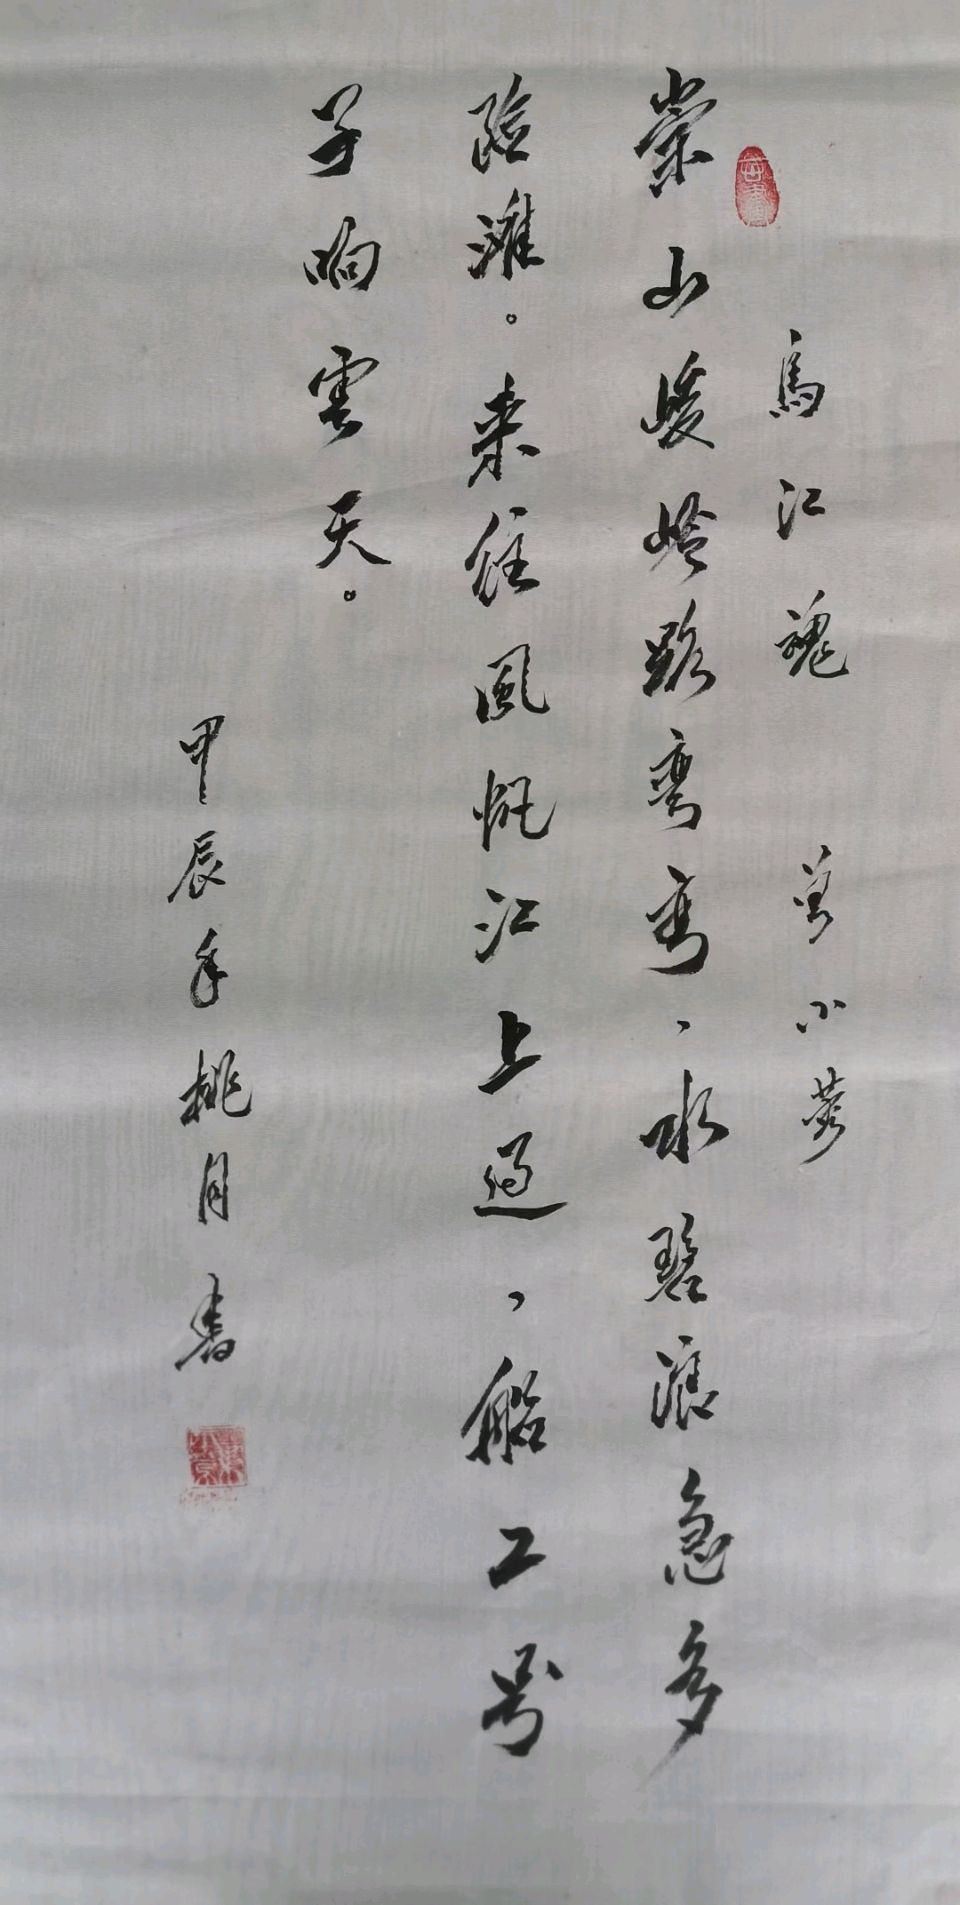 烏江魂 曾小蓉
崇山峻岭路弯弯、水碧浪急多
险滩。来往风帆江上过、船工号
子响雲天。
甲辰年桃月書